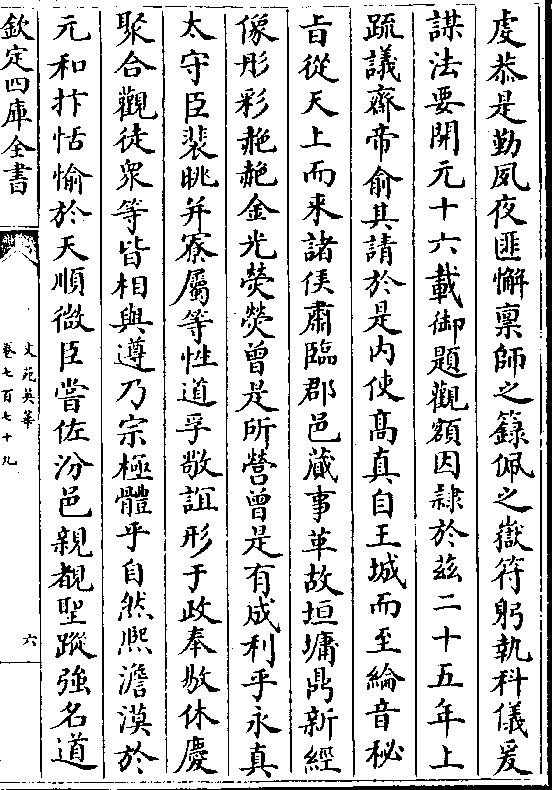 虔恭是勤夙夜匪懈禀師之籙佩之嶽符躬執科儀爰
謀法要開元十六載御題觀額因隷於兹二十五年上
疏議齋帝俞其請於是内使髙真自王城而至綸音秘
旨從天上而來諸侯肅臨郡邑蕆事革故垣墉鼎新經
像彤彩赩赩金光熒熒曾是所營曾是有成利乎永真
太守臣裴眺并寮屬等性道孚敬誼形于政奉敭休慶
聚合觀徒衆等皆相與遵乃宗極體乎自然熈澹漠於
元和抃怙愉於天順微臣嘗佐汾邑親覩聖蹤強名道
欽定四庫全書
文苑英華
卷七百七十九
六